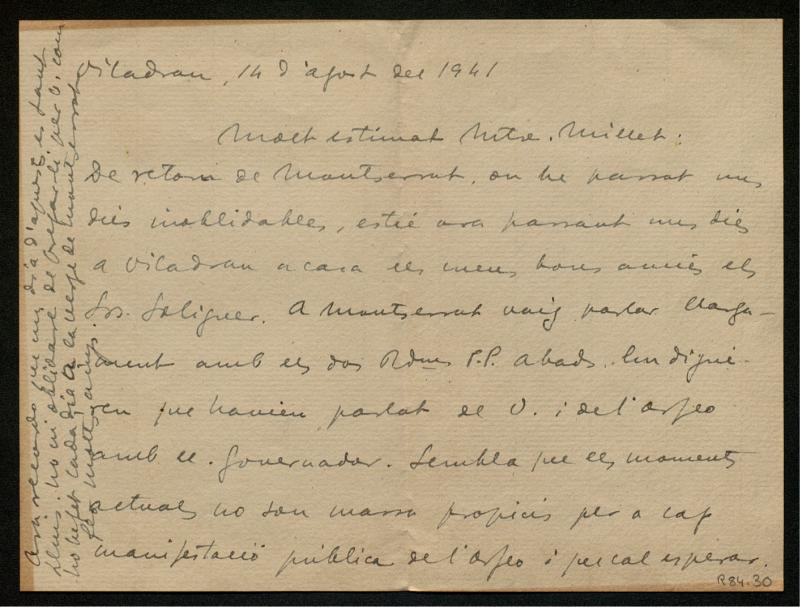 Viladrau, 14 d'agost del 1941
Molt estimat Mtre. Millet.
De retorn de Montserrat, on he passat uns
dies inoblidables, estic ara passant uns dies
a Viladrau a casa els meus bons amics els
Srs. Soliguer. A Montserrat vaig parlar llarga-
ment amb els dos Rdms P.P. Abads. Em digue-
ren que havien parlat de V. i de l'Orfeo
amb el Governador. Sembla que els moments
actuals no son massa propicis per a cap
manifestació pública de l'Orfeo i que cal esperar.
Ara recordo que un dia d'aquests es sant
Lluis no m'oblidaré de pregar-li per V. com
ho he fet cada dia a la verge de Montserrat
Per molts anys.
R84.30